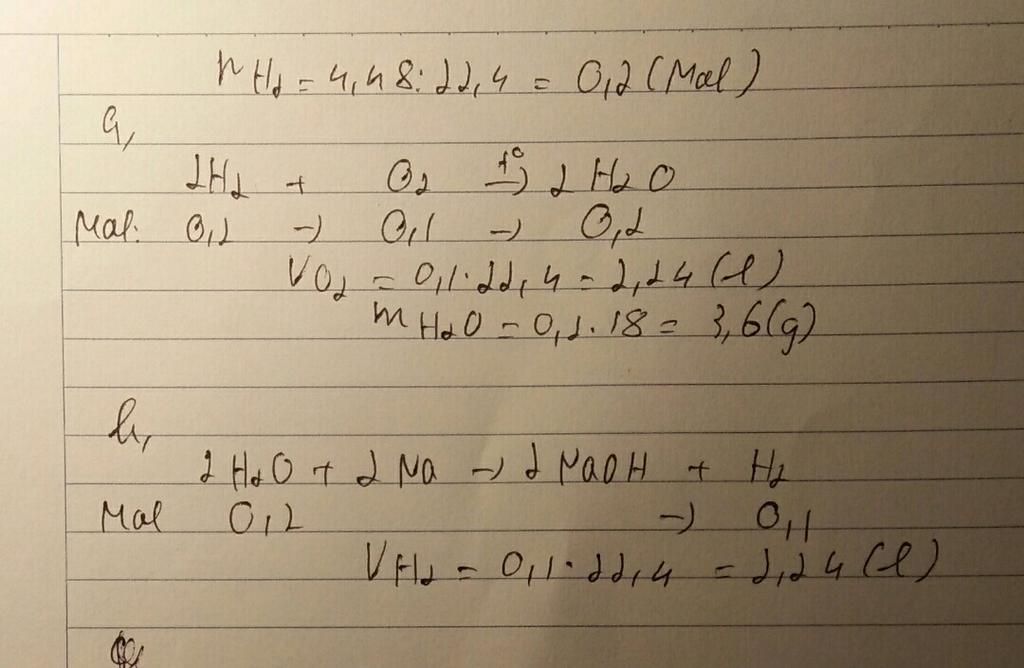 nH₂ = 4,48 : 22,4 = 0,2 (Mol)
a,
2H₂ + O₂ →t° 2 H₂O
Mol: 0,2 → 0,1 → 0,2
VO₂ = 0,1 . 22,4 = 2,24 (l)
mH₂O = 0,2 . 18 = 3,6 (g)
b,
2 H₂O + 2 Na → 2 NaOH + H₂
Mol 0,2 → 0,1
VH₂ = 0,1 . 22,4 = 2,24 (l)